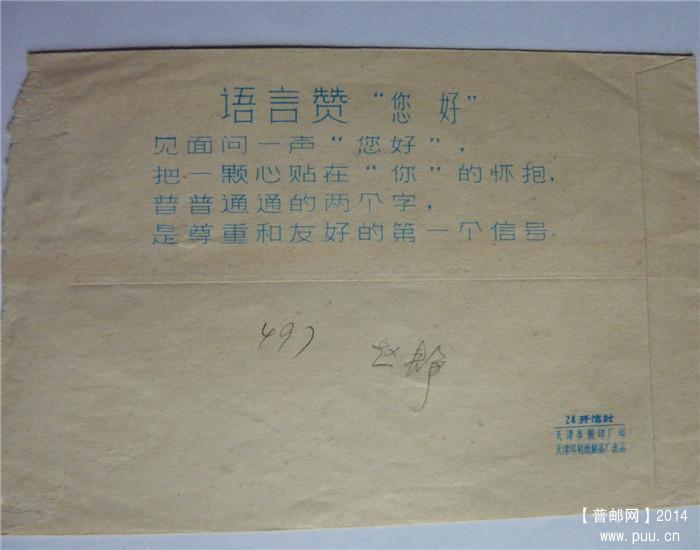 语言赞 “您 好”
见面问一声“您好”，
把一颗心贴在“你”的怀抱，
普普通通的两个字，
是尊重和友好的第一个信号。
497
赵静
24开信封
天津市胶印厂印
天津印刷纸制品厂出品
【普邮网】2014
www.puu.cn